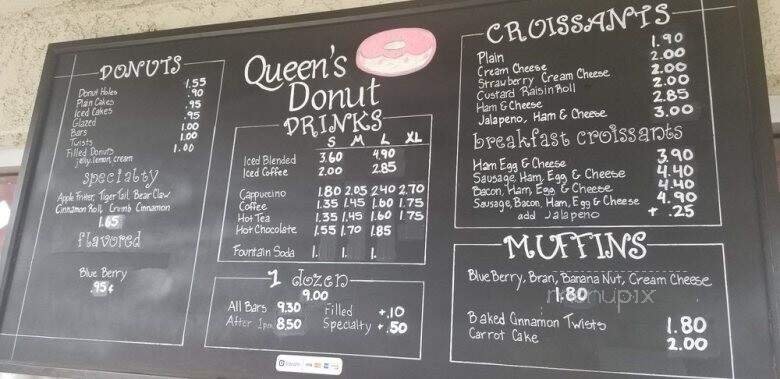 DONUTS
Donut Holes 1.55
Plain Cakes .90
Iced Cakes .95
Glazed .95
Bars 1.00
Twists 1.00
Filled Donuts 1.00
jelly, lemon, cream
specialty
Apple Fritter, Tiger Tail, Bear Claw
Cinnamon Roll, Crumb Cinnamon
1.65
flavored
Blue Berry
.95¢
Queen's
Donut
DRINKS
S M L XL
Iced Blended 3.60 4.90
Iced Coffee 2.00 2.85
Cappuccino 1.80 2.05 2.40 2.70
Coffee 1.35 1.45 1.60 1.75
Hot Tea 1.35 1.45 1.60 1.75
Hot Chocolate 1.55 1.70 1.85
Fountain Soda 1. 1. 1.
1 dozen
9.00
All Bars 9.30 Filled +.10
After 1pm 8.50 Specialty +.50
CROISSANTS
Plain 1.90
Cream Cheese 2.00
Strawberry Cream Cheese 2.00
Custard Raisin Roll 2.00
Ham & Cheese 2.85
Jalapeno, Ham & Cheese 3.00
breakfast croissants
Ham Egg & Cheese 3.90
Sausage, Ham, Egg & Cheese 4.40
Bacon, Ham, Egg & Cheese 4.40
Sausage, Bacon, Ham, Egg & Cheese 4.90
add Jalapeno + .25
MUFFINS
Blue Berry, Bran, Banana Nut, Cream Cheese
1.80
menupix
Baked Cinnamon Twists 1.80
Carrot Cake 2.00